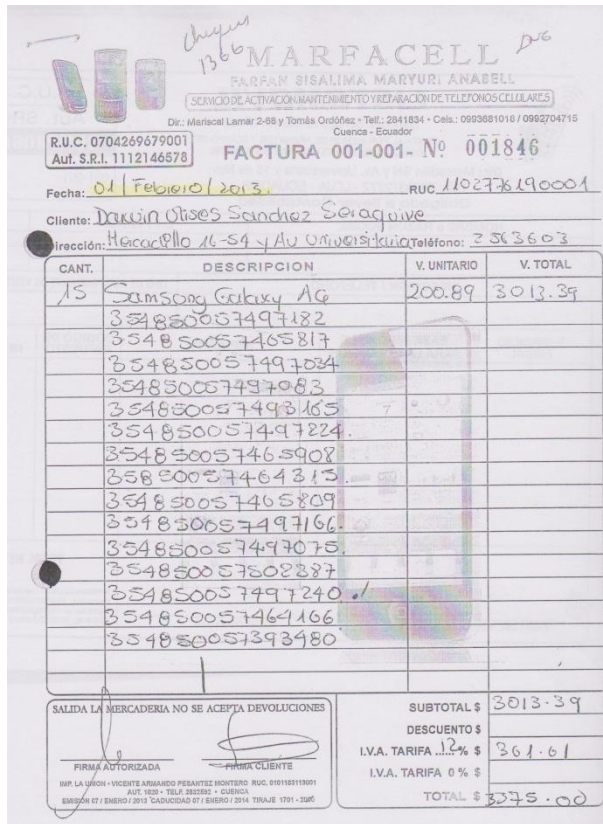 cheques
1366
MARFACELL
FARFAN SISALIMA MARYURI ANABELL
SERVICIO DE ACTIVACION, MANTENIMIENTO Y REPARACION DE TELEFONOS CELULARES
Dir.: Mariscal Lamar 2-68 y Tomás Ordóñez • Telf.: 2841834 • Cels.: 0993681018 / 0992704715
Cuenca - Ecuador
R.U.C. 0704269679001
Aut. S.R.I. 1112146578
FACTURA 001-001- Nº 001846
Fecha: 01/Febrero/2013. RUC 1102776190001
Cliente: Darwin Ulises Sanchez Saraquive
Dirección: Mercadillo 16-54 y Av Universitaria Teléfono: 2563603
CANT. DESCRIPCION V. UNITARIO V. TOTAL
15 Samsong Galaxy 200.89 3013.39
354850057497182
354850057465817
354850057497034
354850057497083
354850057493165
354850057497224.
354850057465908
35850057464315.
354850057465809
354850057497166.
354850057497075.
354850057502387
354850057497240.
354850057464166
354850057393480
SALIDA LA MERCADERIA NO SE ACEPTA DEVOLUCIONES
FIRMA AUTORIZADA FIRMA CLIENTE
IMP. LA UNION • VICENTE ARMANDO PESANTEZ MONTERO RUC. 0101183119001
AUT. 1620 • TELF. 2832892 • CUENCA
EMISIÓN 07 / ENERO / 2013 CADUCIDAD 07 / ENERO / 2014 TIRAJE 1701 - 2000
SUBTOTAL $ 3013.39
DESCUENTO $
I.V.A. TARIFA 12% $ 361.61
I.V.A. TARIFA 0 % $
TOTAL $ 3375.00